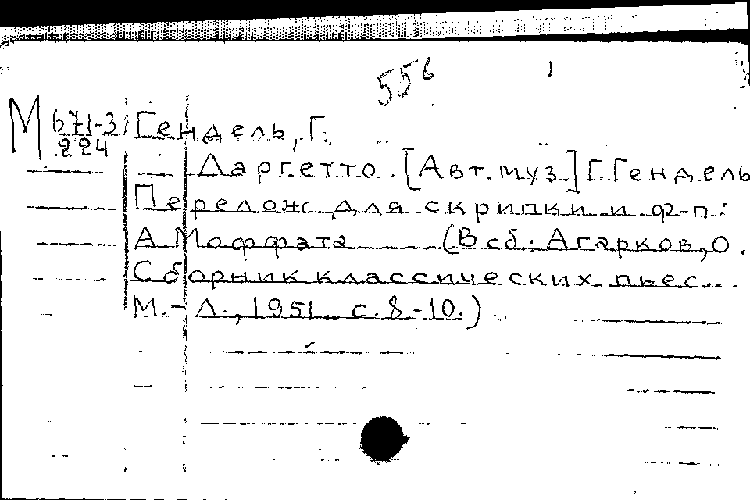 556
М 671-3 Гендель, Г.
224
Ларгетто. [Авт. муз.] Г. Гендель
Перелож. для скрипки и ф-п.:
А. Моффата (В сб.: Агарков, О.
Сборник классических пьес...
М.-Л., 1951 с. 8-10.)